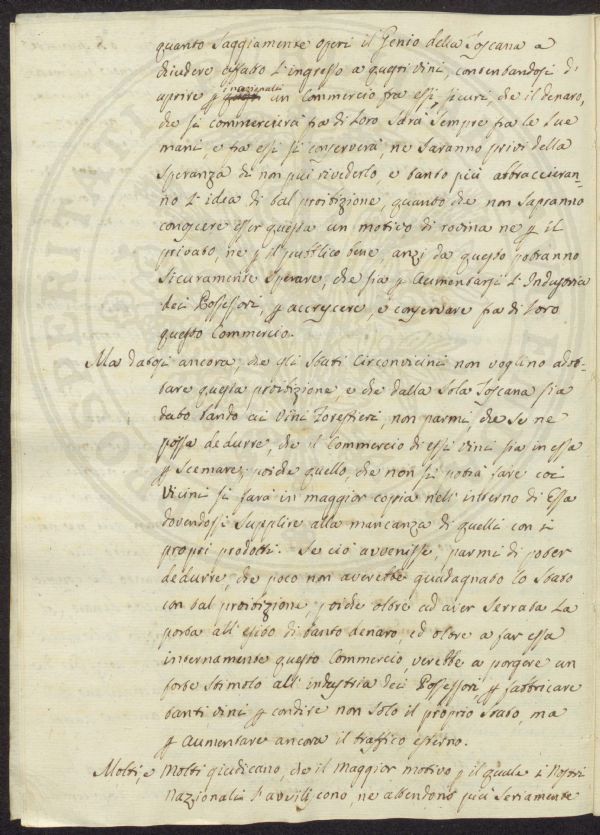 quanto Saggiamente operi il Genio della Toscana a
chiudere affatto l'ingresso a questi Vini, contentandosi di
aprire p nazionali un Commercio fra essi, sicuri, che il denaro,
che si commercierà fra di loro Sarà Sempre fra le Sue
mani, e fra essi si conserverà, ne Saranno privi della
Speranza di non più rivederlo e tanto più abbracceran-
no l'idea di tal proibizione, quando che non Sapranno
conoscere esser questa un motivo di rovina ne p il
privato, ne p il pubblico bene, anzi da questo potranno
Sicuramente Sperare, che sia p Aumentarsi l'Industria
dei Possessori, p accrescere, e conservare fra di loro
questo Commercio.
Ma datosi ancora, che gli Stati Circonvicini non voglino adot-
tare questa proibizione, e che dalla Sola Toscana Sia
dato bando ai Vini Forestieri, non parmi, che se ne
possa dedurre, che il Commercio di essi Vini sia in essa
p Scemare; poiche quello, che non si potrà fare coi
Vicini si farà in maggior copia nell'interno di Essa
dovendosi Supplire alla mancanza di quelli con i
propri prodotti. Se ciò avvenisse, parmi di poter
dedurre, che poco non averebbe guadagnato lo Stato
con tal proibizione, poiche oltre ad aver Serrata La
porta all'esito di tanto denaro, ed oltre a far essa
internamente questo Commercio, verebbe a porgere un
forte Stimolo all'industria dei Possessori p fabbricare
tanti vini p condire non Solo il proprio Stato, ma
p Aumentare ancora il traffico esterno.
Molti, e Molti giudicano, che il Maggior motivo p il quale i Nostri
Nazionali l'avvili cono, ne attendono più Seriamente
PROSPERITATI